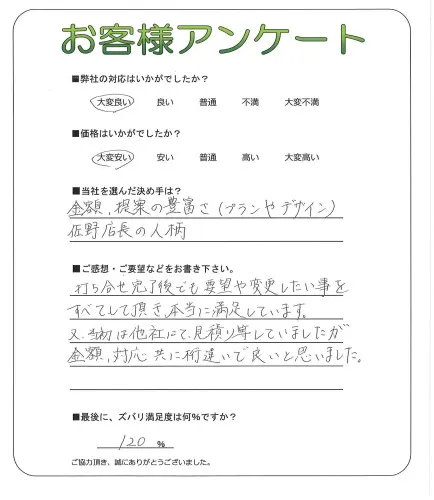 お客様アンケート
■弊社の対応はいかがでしたか?
大変良い 良い 普通 不満 大変不満
■価格はいかがでしたか?
大変安い 安い 普通 高い 大変高い
■当社を選んだ決め手は?
金額、提案の豊富さ(プランやデザイン)
佐野店長の人柄
■ご感想・ご要望などをお書き下さい。
打ち合せ完了後でも要望や変更したい事を
すべてして頂き、本当に満足しています。
又、当初は他社にて、見積り等していましたが
金額、対応共に桁違いで良いと思いました。
■最後に、ズバリ満足度は何%ですか?
120 %
ご協力頂き、誠にありがとうございました。